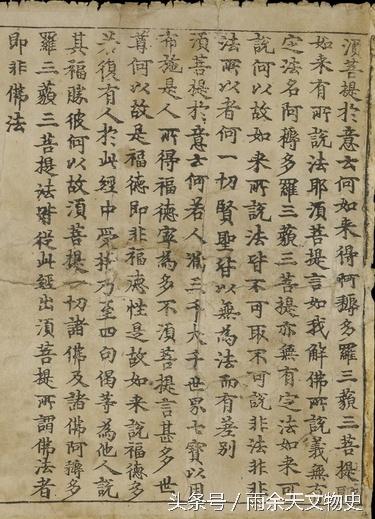 湏菩提於意云何如来得阿耨多羅三藐三菩提耶
如来有所說法耶湏菩提言如我解佛所說義無有
定法名阿耨多羅三藐三菩提亦無有定法如来可
說何以故如来所說法皆不可取不可說非法非非
法所以者何一切賢聖皆以無為法而有差别
湏菩提於意云何若人滿三千大千世界七寶以用
布施是人所得福德寧為多不湏菩提言甚多世
尊何以故是福德即非福德性是故如来說福德多
若復有人於此經中受持乃至四句偈等為他人說
其福勝彼何以故湏菩提一切諸佛及諸佛阿耨多
羅三藐三菩提法皆從此經出湏菩提所謂佛法者
即非佛法
头条号/雨余天文物史